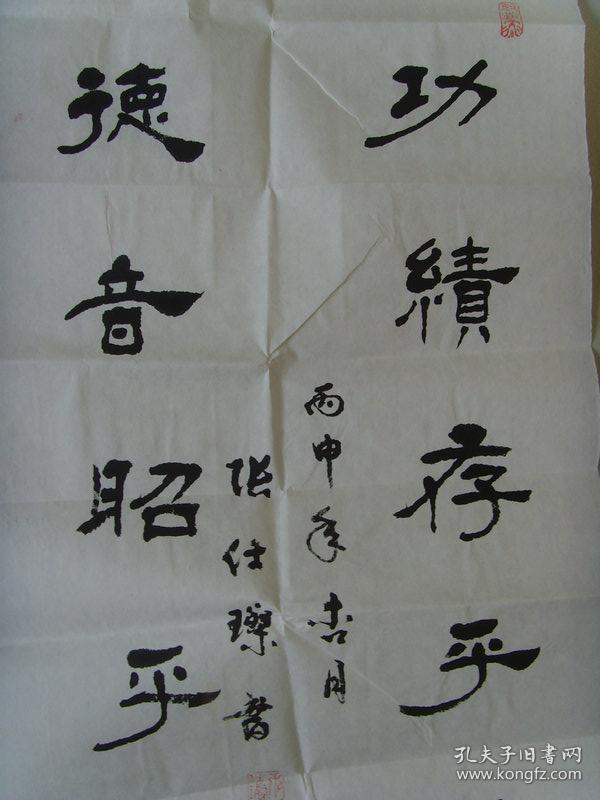 功績存乎
德音昭乎
丙申年杏月
张仕璨書
孔夫子旧书网
www.kongfz.com